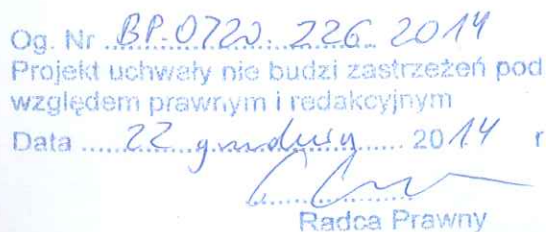 Og. Nr BP.0720.226.2014
Projekt uchwały nie budzi zastrzeżeń pod
względem prawnym i redakcyjnym
Data ..... 22 grudnia ..... 2014 r
Radca Prawny